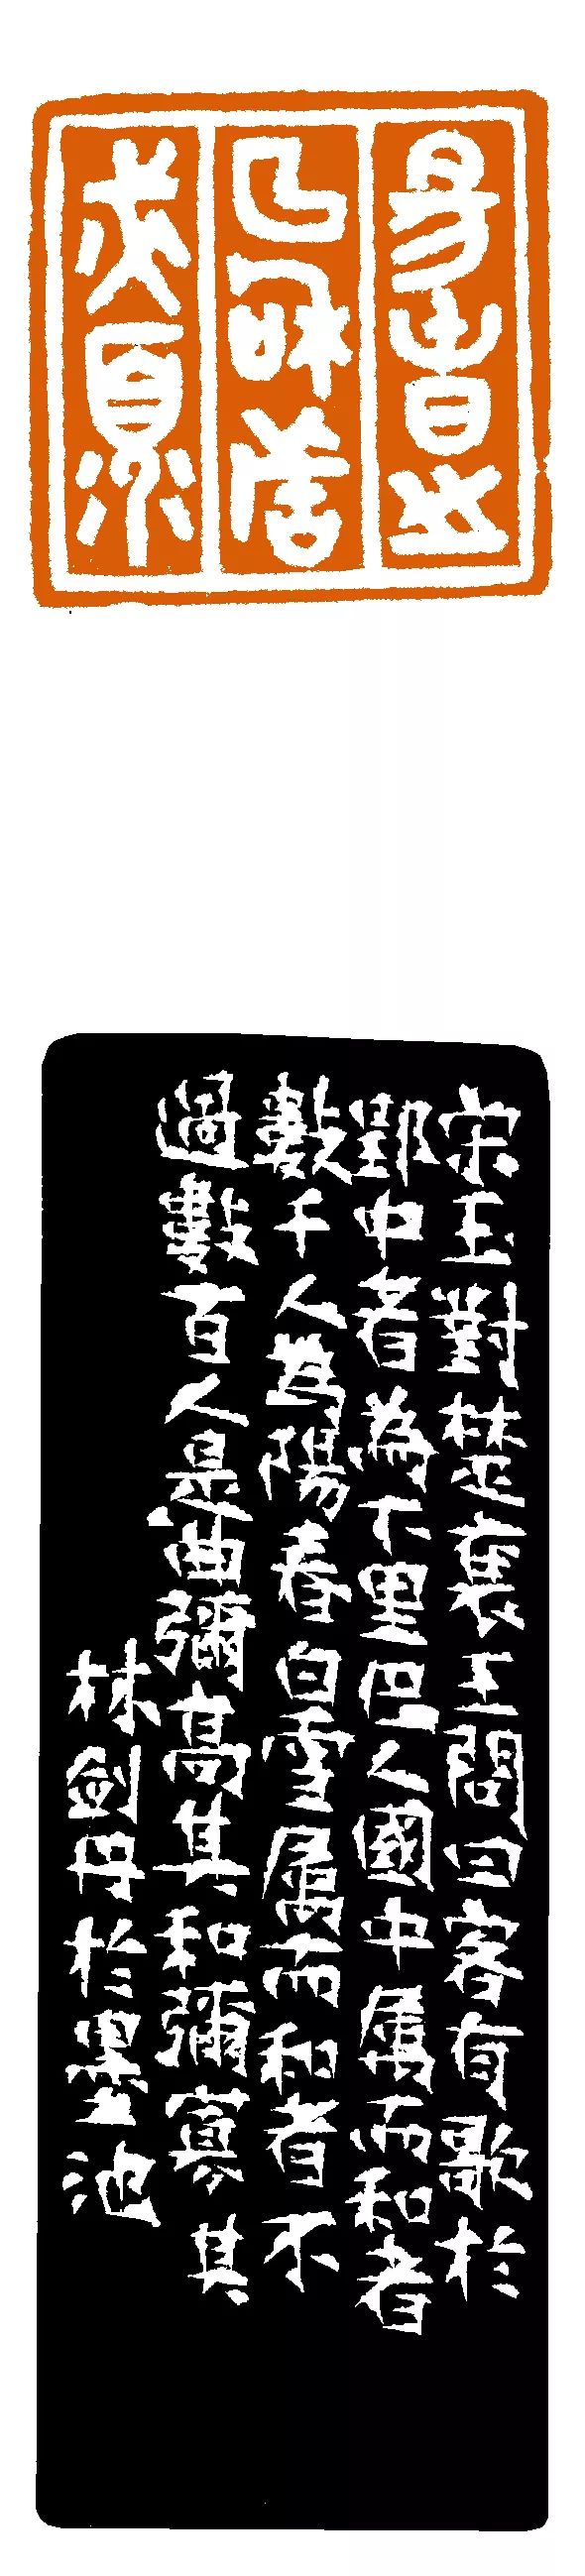 宋玉對楚襄王問曰客有歌於
郢中者為下里巴人國中属而和者
數千人為陽春白雪属而和者不
過數百人是曲彌高其和彌寡其
林劍丹於墨池